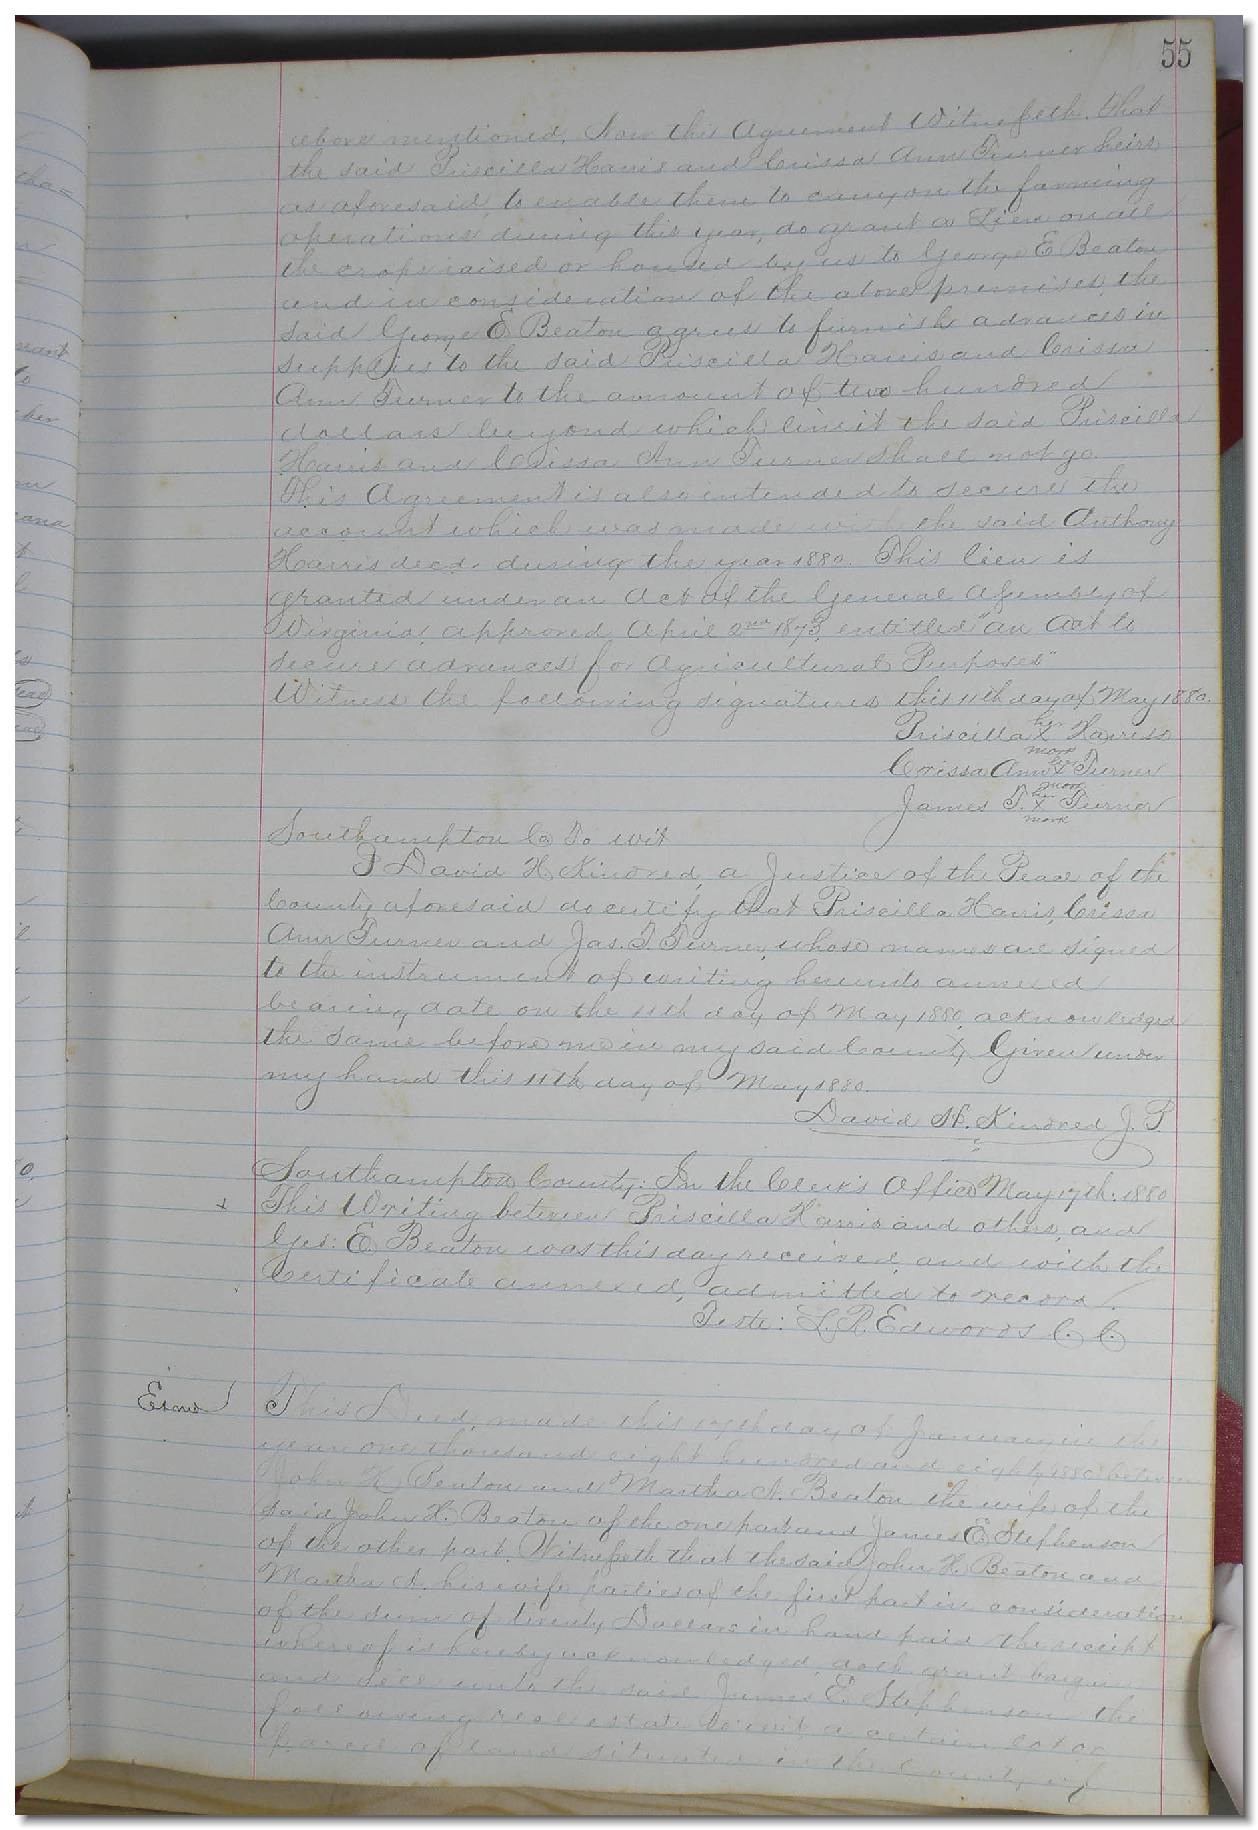 55
above mentioned, Now this Agreement Witnesseth, That
the said Priscilla Harris and Crissa Ann Turner heirs
as aforesaid, to enable them to carry on the farming
operations during this year, do grant a Lien on all
the crops raised or housed by us to George E Beaton
and in consideration of the above premises, the
said George E Beaton agrees to furnish advances in
supplies to the said Priscilla Harris and Crissa
Ann Turner to the amount of two hundred
dollars beyond which limit the said Priscilla
Harris and Crissa Ann Turner shall not go.
This Agreement is also intended to secure the
account which was made with the said Anthony
Harris decd. during the year 1880. This lien is
granted under an Act of the General Assembly of
Virginia, approved April 2nd 1873, entitled "an Act to
secure advances for Agricultural Purposes"
Witness the following signatures this 11th day of May 1880.
Priscilla her X mark Harris
Crissa Ann her X mark Turner
James T. his X mark Turner
Southampton Co To wit
I David H Kindred, a Justice of the Peace of the
County aforesaid do certify that Priscilla Harris, Crissa
Ann Turner and Jas. T. Turner, whose names are signed
to the instrument of writing hereunto annexed
bearing date on the 11th day of May 1880, acknowledged
the same before me in my said County. Given under
my hand this 11th day of May 1880.
David H. Kindred J. P.
Southampton County: In the Clerk's Office May 17th: 1880
This Writing between Priscilla Harris and others, and
Geo: E. Beaton was this day received, and with the
Certificate annexed, admitted to record.
Teste: L. R. Edwards C. C.
This Deed, made this 17th day of January in the
year one thousand eight hundred and eighty 1880 between
John H. Beaton and Martha A. Beaton the wife of the
said John H. Beaton of the one part and James E. Stephenson
of the other part. Witnesseth that the said John H. Beaton and
Martha A. his wife parties of the first part in consideration
of the sum of twenty Dollars in hand paid the receipt
whereof is hereby acknowledged, doth grant bargain
and sell unto the said James E. Stephenson the
following real estate to wit, a certain lot or
parcel of land situated in the County of